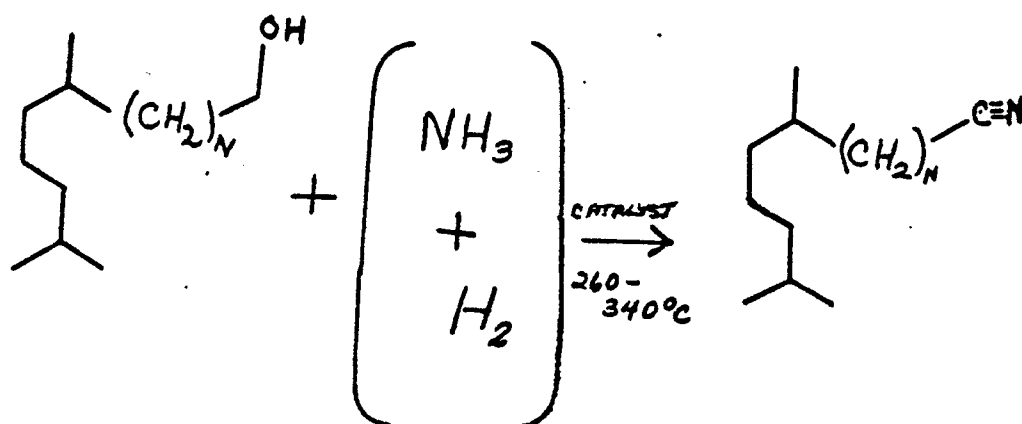 OH
(CH₂)N
+
NH₃
+
H₂
CATALYST
260-
340°C
(CH₂)N
C≡N